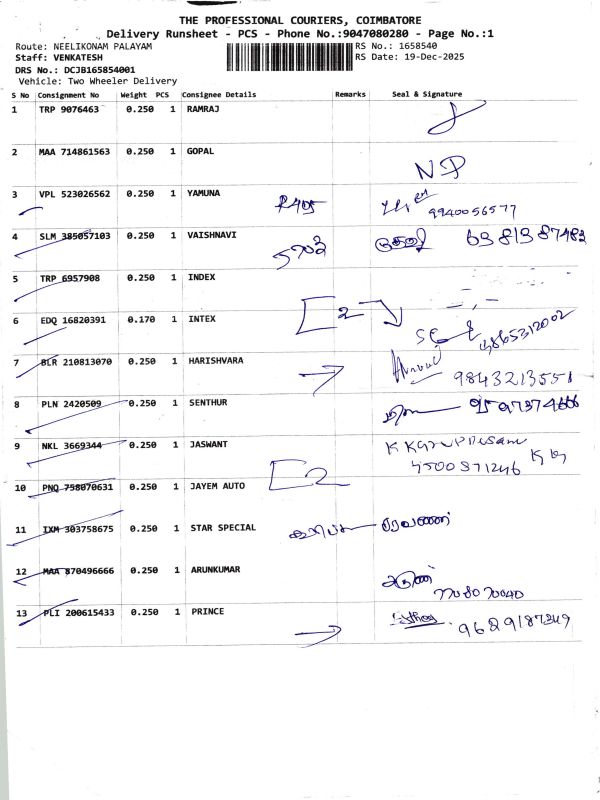 THE PROFESSIONAL COURIERS, COIMBATORE
Delivery Runsheet - PCS - Phone No.:9047080280 - Page No.:1
Route: NEELIKONAM PALAYAM
RS No.: 1658540
Staff: VENKATESH
RS Date: 19-Dec-2025
DRS No.: DCJB165854001
Vehicle: Two Wheeler Delivery
S No Consignment No Weight PCS Consignee Details Remarks Seal & Signature
1 TRP 9076463 0.250 1 RAMRAJ
2 MAA 714861563 0.250 1 GOPAL
NP
3 VPL 523026562 0.250 1 YAMUNA
9940056577
4 SLM 385057103 0.250 1 VAISHNAVI
5703
5 TRP 6957908 0.250 1 INDEX
E2
6 EDQ 16820391 0.170 1 INTEX
7 BLR 210813070 0.250 1 HARISHVARA
9843213551
8 PLN 2420509 0.250 1 SENTHUR
9 NKL 3669344 0.250 1 JASWANT
E2
10 PNQ 758070631 0.250 1 JAYEM AUTO
11 IXM 303758675 0.250 1 STAR SPECIAL
சரவணன்
12 MAA 870496666 0.250 1 ARUNKUMAR
அருண்
13 PLI 200615433 0.250 1 PRINCE
9629187249